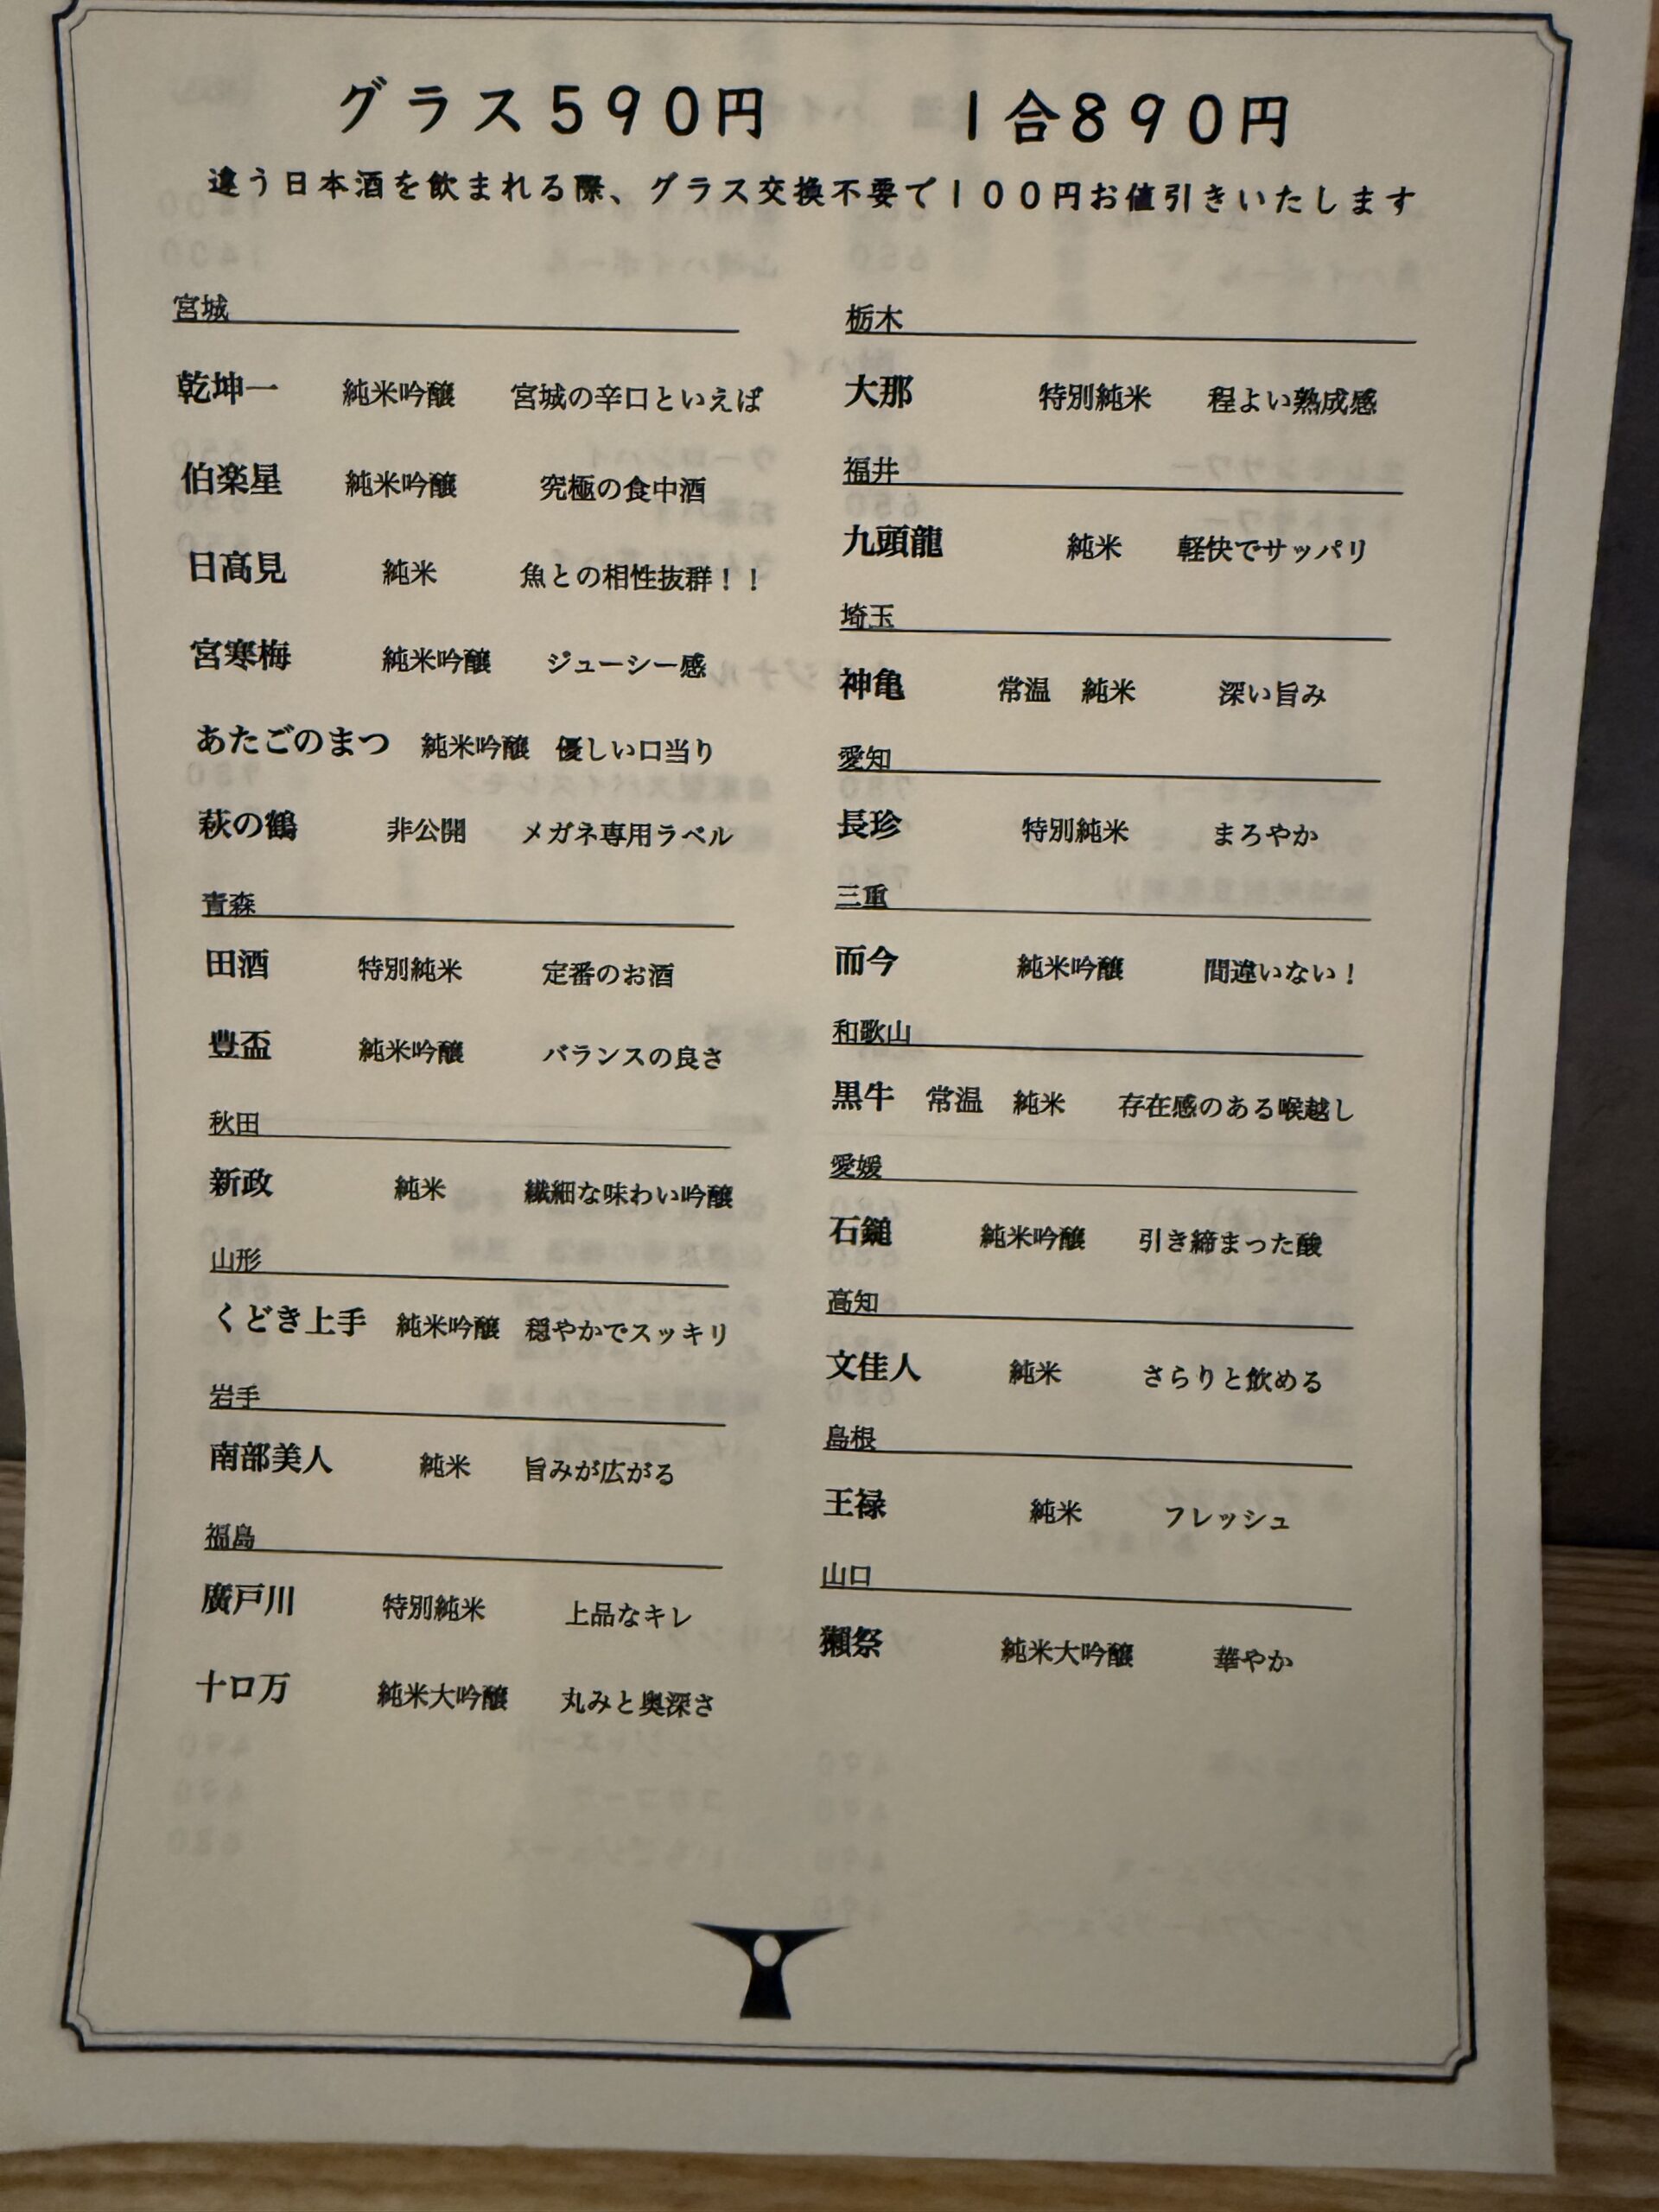 グラス590円　1合890円
違う日本酒を飲まれる際、グラス交換不要で100円お値引きいたします
宮城
乾坤一　純米吟醸　宮城の辛口といえば
伯楽星　純米吟醸　究極の食中酒
日髙見　純米　魚との相性抜群！！
宮寒梅　純米吟醸　ジューシー感
あたごのまつ　純米吟醸　優しい口当り
萩の鶴　非公開　メガネ専用ラベル
青森
田酒　特別純米　定番のお酒
豊盃　純米吟醸　バランスの良さ
秋田
新政　純米　繊細な味わい吟醸
山形
くどき上手　純米吟醸　穏やかでスッキリ
岩手
南部美人　純米　旨みが広がる
福島
廣戸川　特別純米　上品なキレ
十ロ万　純米大吟醸　丸みと奥深さ
栃木
大那　特別純米　程よい熟成感
福井
九頭龍　純米　軽快でサッパリ
埼玉
神亀　常温　純米　深い旨み
愛知
長珍　特別純米　まろやか
三重
而今　純米吟醸　間違いない！
和歌山
黒牛　常温　純米　存在感のある喉越し
愛媛
石鎚　純米吟醸　引き締まった酸
高知
文佳人　純米　さらりと飲める
島根
王禄　純米　フレッシュ
山口
獺祭　純米大吟醸　華やか